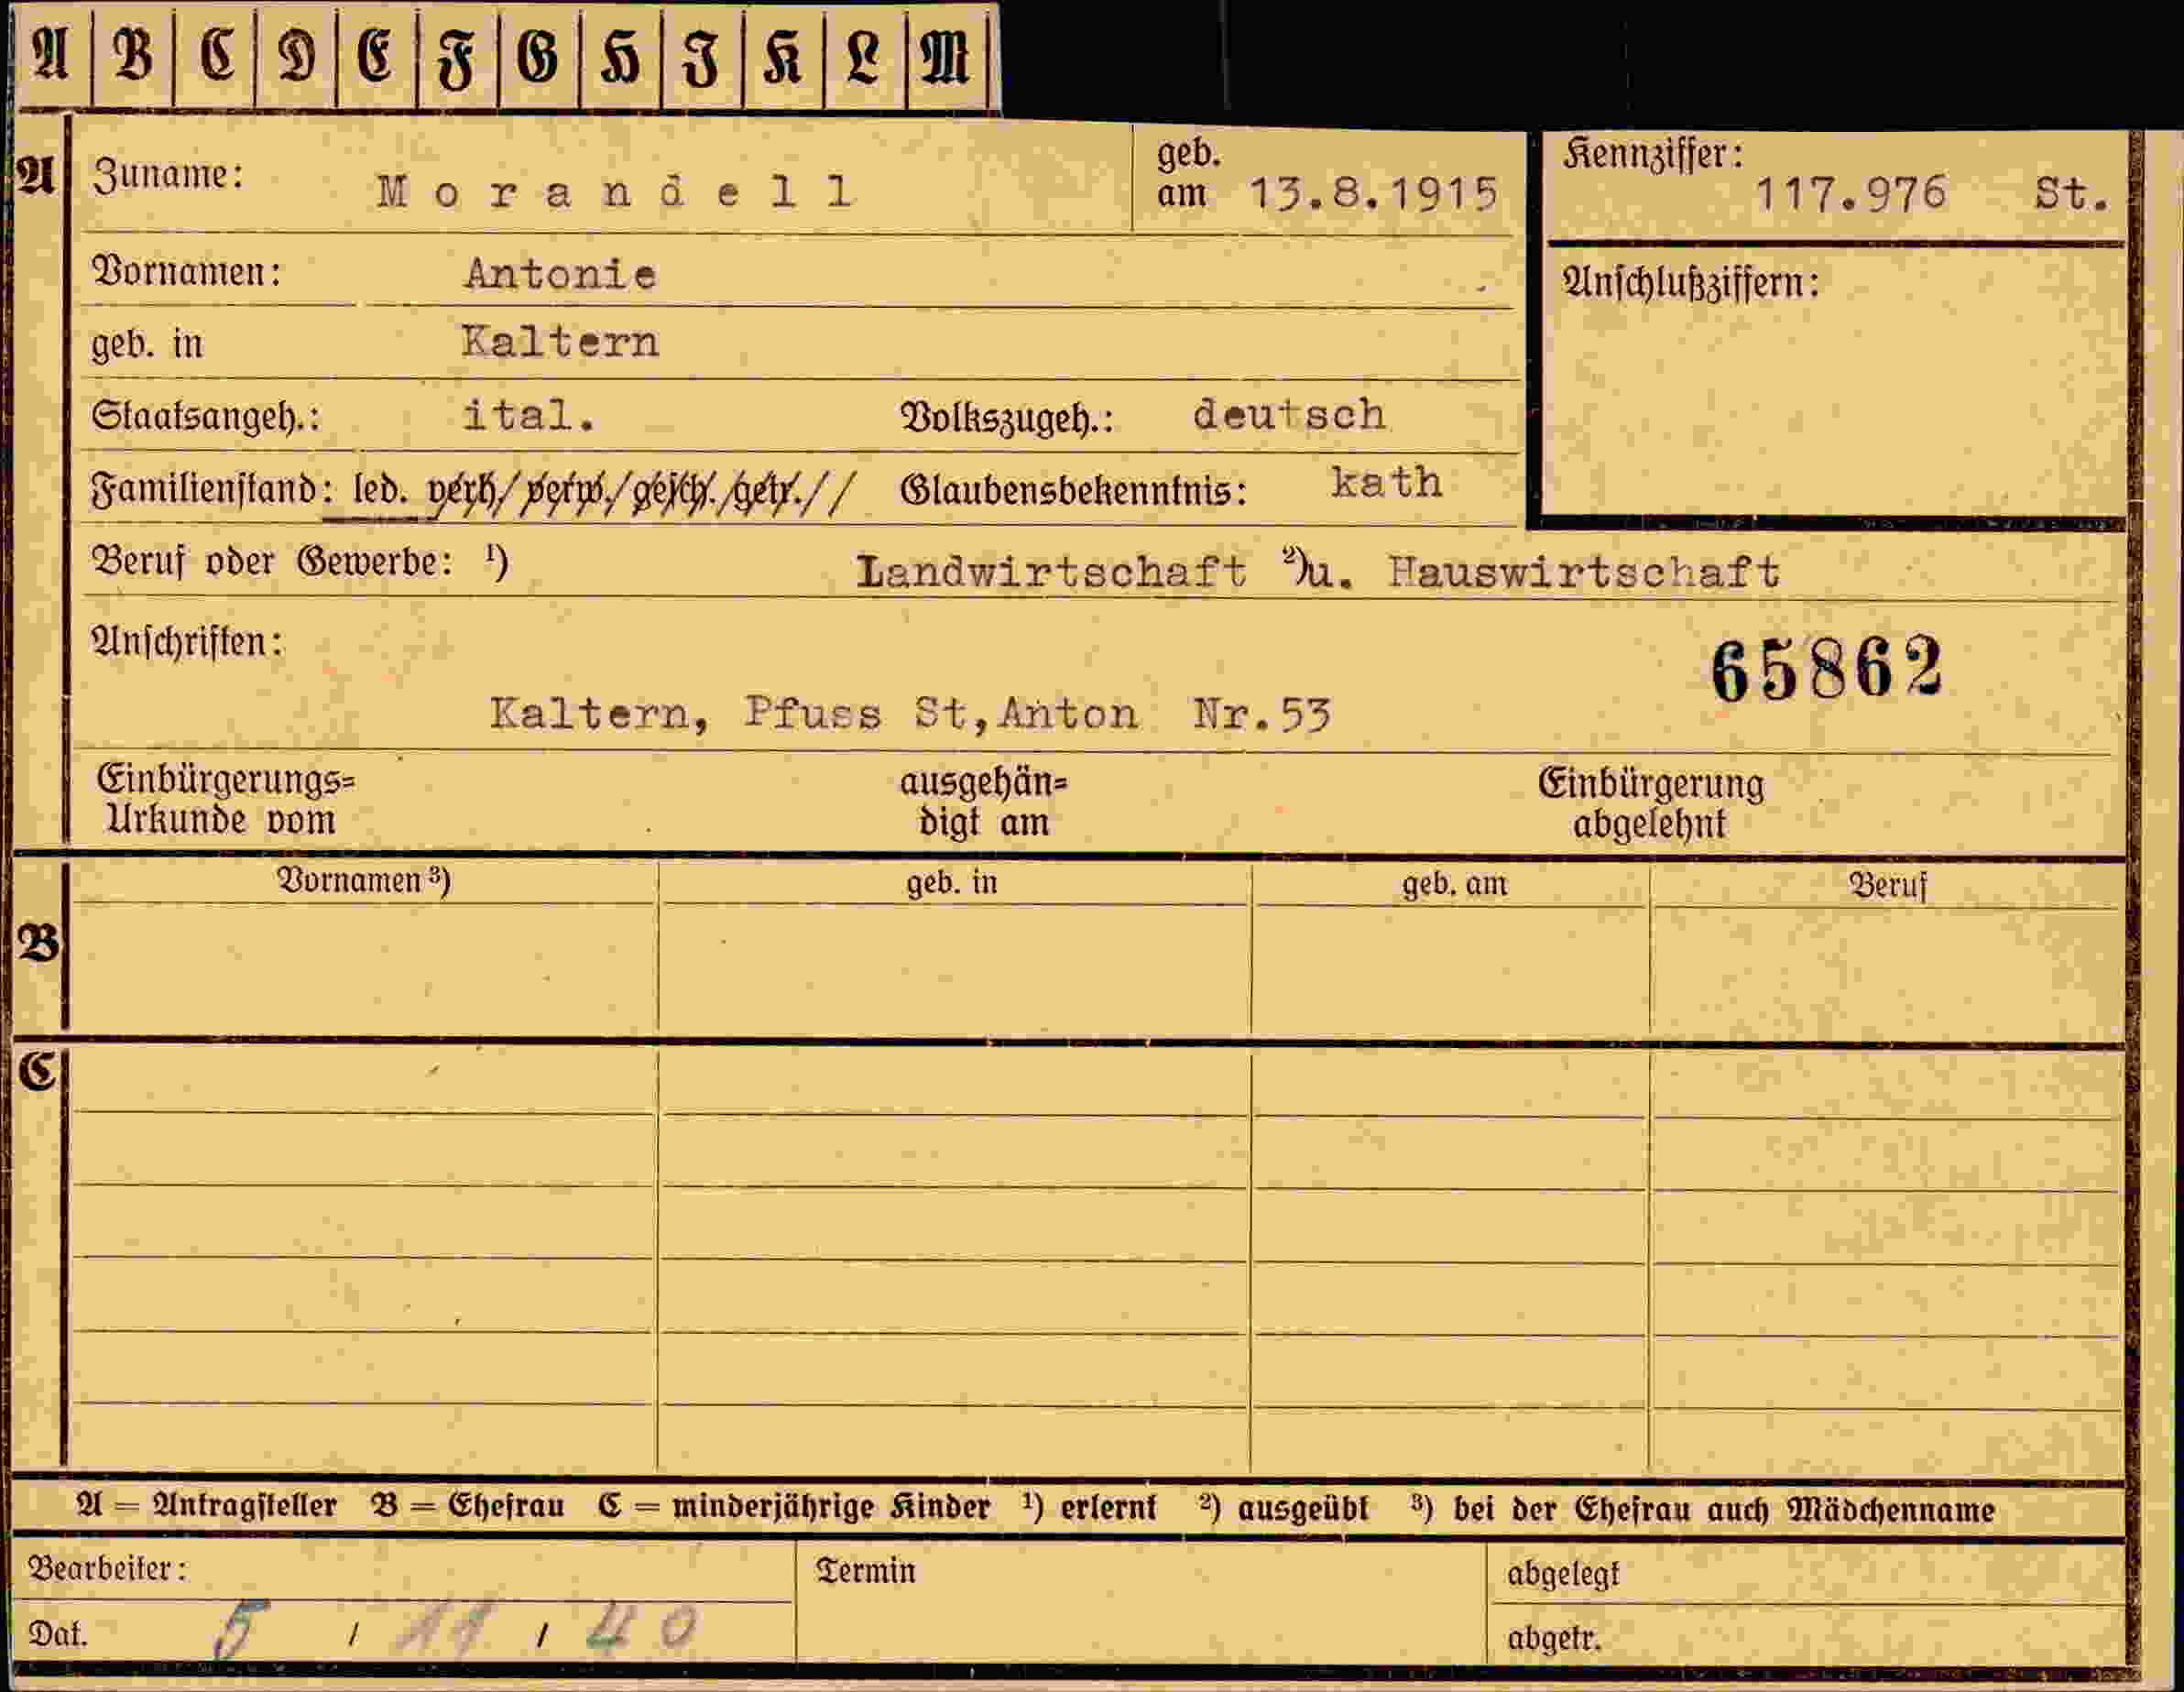 A B C D E F G H I K L M
A Zuname: Morandell geb. am 13.8.1915 Kennziffer: 117.976 St.
Vornamen: Antonie Anschlußziffern:
geb. in Kaltern
Staatsangeh.: ital. Volkszugeh.: deutsch
Familienstand: led. verh./verw./gesch./getr.// Glaubensbekenntnis: kath
Beruf oder Gewerbe: ¹) Landwirtschaft ²)u. Hauswirtschaft
Anschriften:
65862
Kaltern, Pfuss St,Anton Nr.53
Einbürgerungs= ausgehän= Einbürgerung
Urkunde vom digt am abgelehnt
Vornamen ³) geb. in geb. am Beruf
B
C
A = Antragsteller B = Ehefrau C = minderjährige Kinder ¹) erlernt ²) ausgeübt ³) bei der Ehefrau auch Mädchenname
Bearbeiter: Termin abgelegt
Dat. 5 / 11 / 40 abgetr.